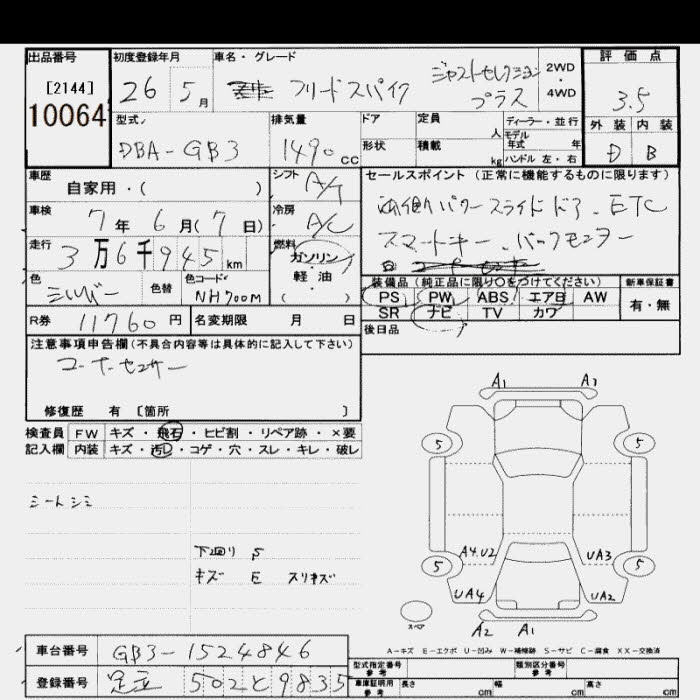 出品番号 初度登録年月 車名・グレード 評価点
[2144] 26 5月 フリードスパイク ジャストセレクション プラス 2WD・4WD 3.5
10064
型式 排気量 ドア 定員 人 ディーラー・並行 外装 内装
DBA-GB3 1490 cc 形状 積載 kg モデル年式 年 D B
ハンドル 左・右
車歴 シフト セールスポイント (正常に機能するものに限ります)
自家用・( ) A/T
車検 冷房 パワースライドドア、ETC
7年 6月(7日) A/C スマートキー、バックモニター
走行 燃料
3万6千945km ガソリン・軽・油 ( )
装備品 (純正品に限り○をつけてください) 新車保証書
色 色替 色コード PS PW ABS エアB AW 有・無
シルバー NH700M SR ナビ TV カワ
R券 11760円 名変期限 月 日 後日品
注意事項申告欄(不具合内容等は具体的に記入して下さい)
コーナーセンサー
修復歴 有 [箇所 ]
検査員 FW キズ・飛石・ヒビ割・リペア跡・×要
記入欄 内装 キズ・汚レ・コゲ・穴・スレ・キレ・破レ
シートシミ
下回り S
キズ E スリキズ
A1 A1
5 5
A4.U2 UA3
5 5
UA4 UA2
スペア
A2 A1
A-キズ E-エクボ U-凹み W-補修跡 S-サビ C-腐食 XX-交換済
車台番号 GB3-1524846
型式指定番号 参考 類別区分番号 参考
登録番号 足立 502 と 9835
車庫証明用 参考 長さ cm 幅 cm 高さ cm